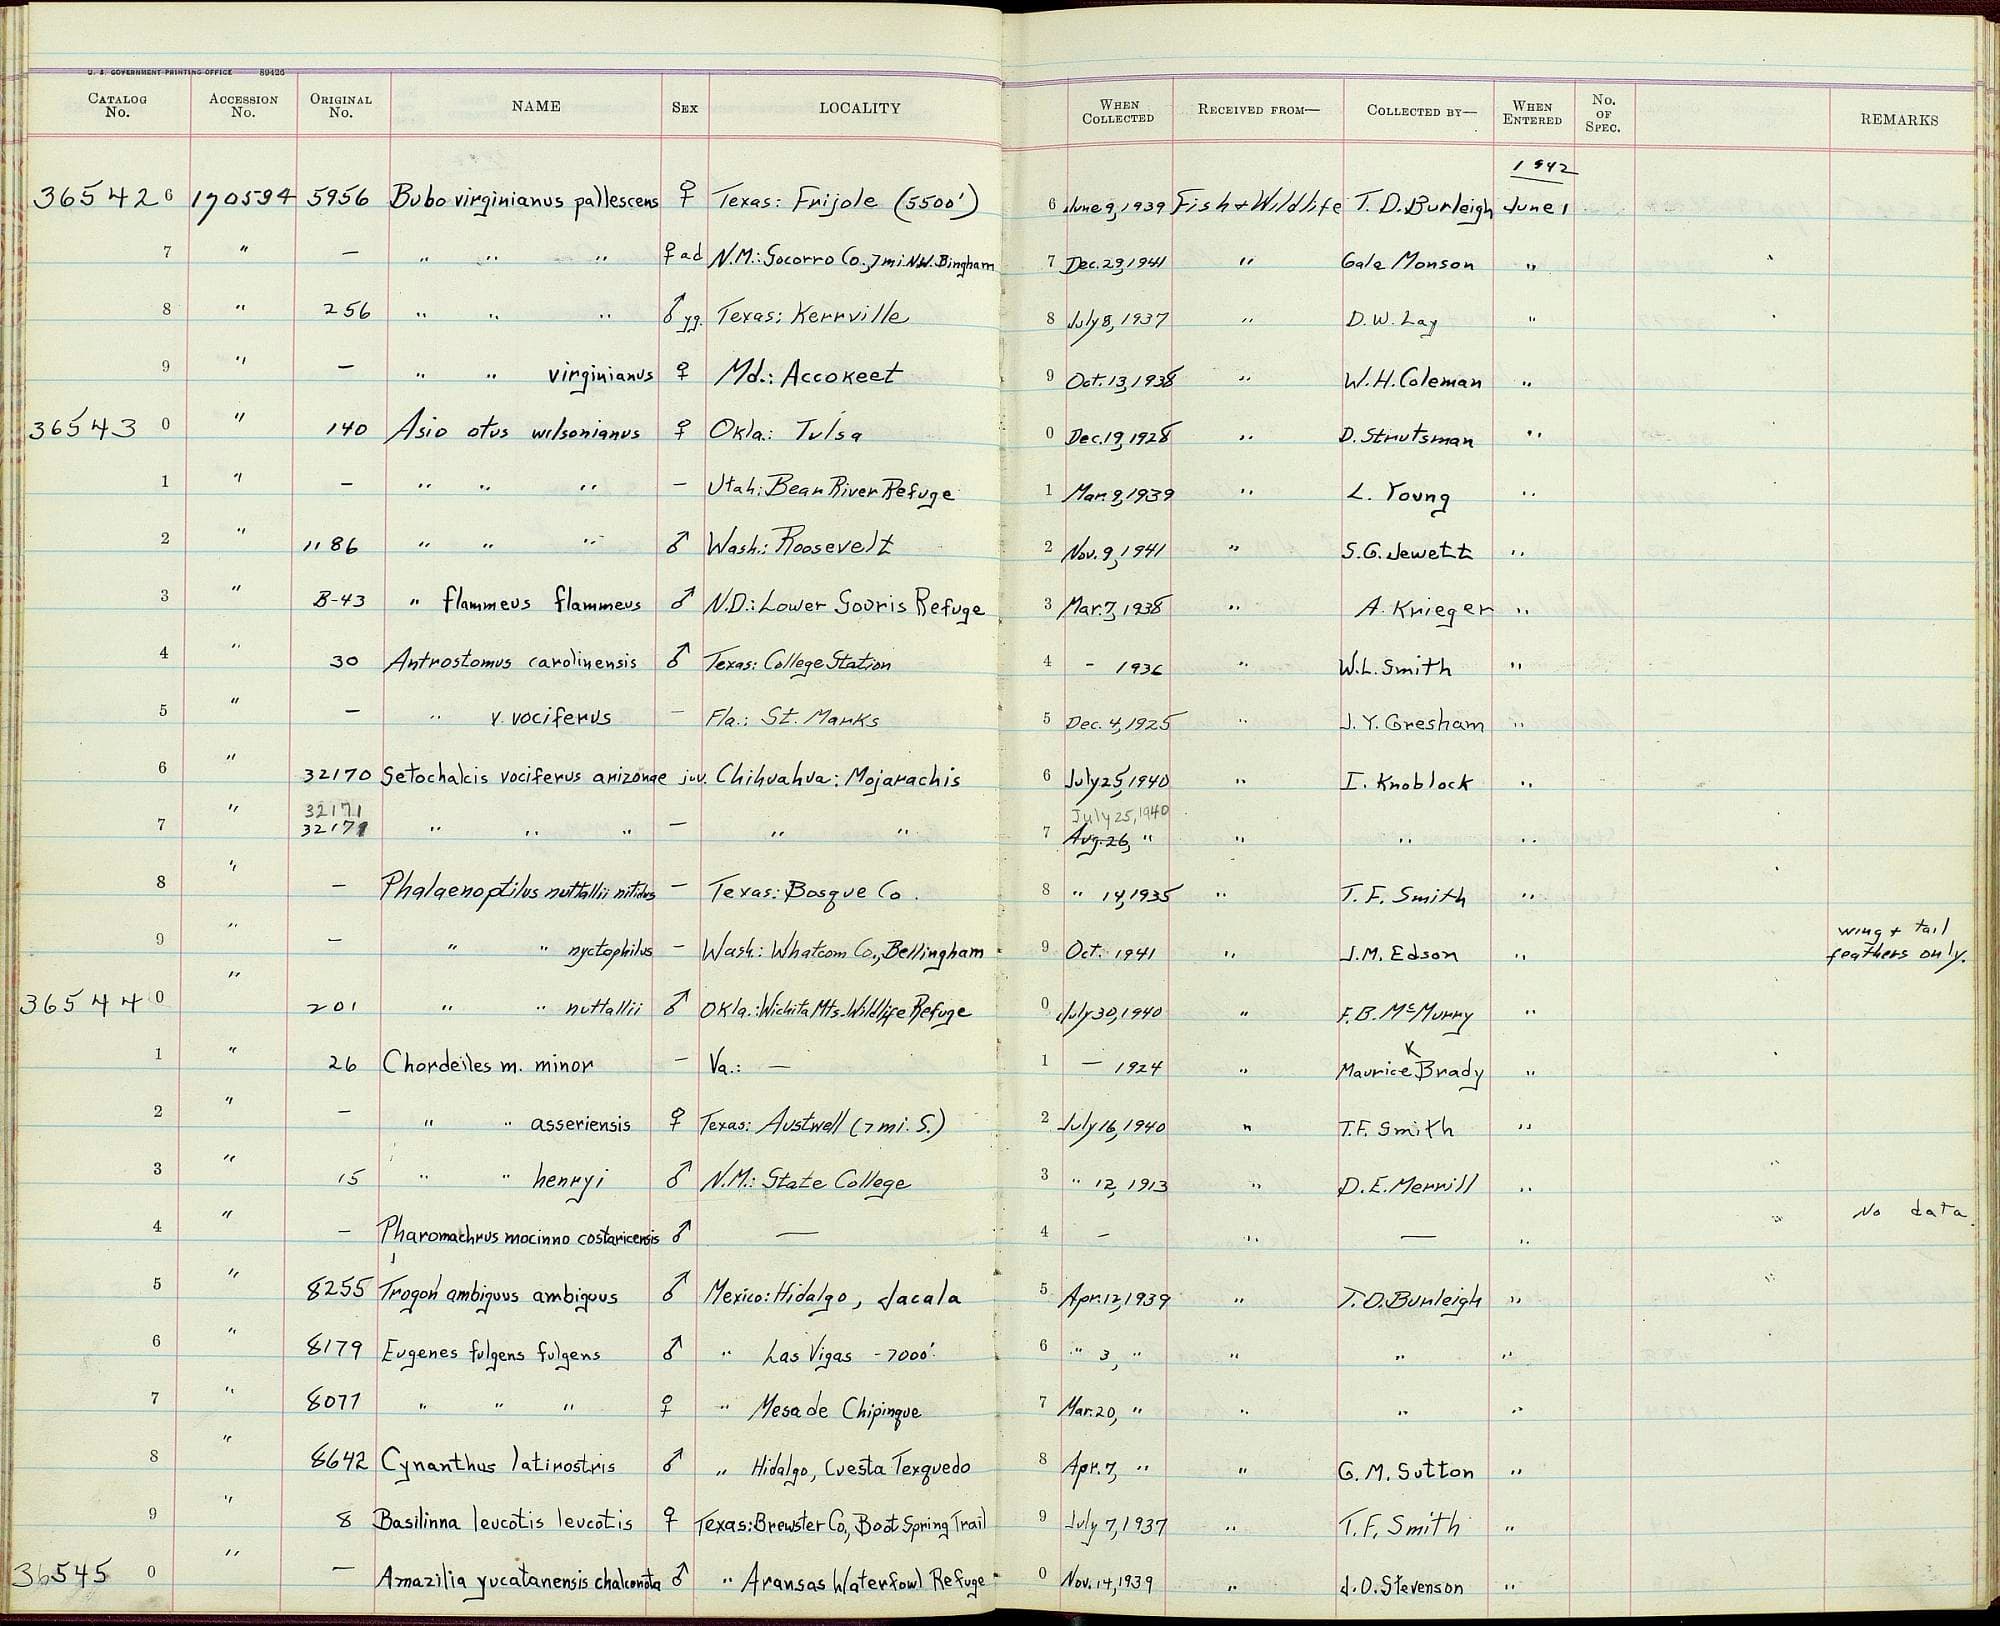 U. S. GOVERNMENT PRINTING OFFICE 89426
CATALOG No. ACCESSION No. ORIGINAL No. NAME SEX LOCALITY WHEN COLLECTED RECEIVED FROM— COLLECTED BY— WHEN ENTERED No. OF SPEC. REMARKS
1942
36542 6 170594 5956 Bubo virginianus pallescens ♀ Texas: Frijole (5500') 6 June 9, 1939 Fish + Wildlife T. D. Burleigh June 1
7 " — " " " ♀ ad N.M.: Socorro Co., 7 mi. N.W. Bingham 7 Dec. 29, 1941 " Gale Monson "
8 " 256 " " " ♂ yg. Texas: Kerrville 8 July 8, 1937 " D. W. Lay "
9 " — " " virginianus ♀ Md.: Accokeet 9 Oct. 13, 1938 " W. H. Coleman "
36543 0 " 140 Asio otus wilsonianus ♀ Okla.: Tulsa 0 Dec. 19, 1928 " D. Strutsman "
1 " — " " " — Utah: Bear River Refuge 1 Mar. 9, 1939 " L. Young "
2 " 1186 " " " ♂ Wash.: Roosevelt 2 Nov. 9, 1941 " S. G. Jewett "
3 " B-43 " flammeus flammeus ♂ N.D.: Lower Souris Refuge 3 Mar. 7, 1938 " A. Krieger "
4 " 30 Antrostomus carolinensis ♂ Texas: College Station 4 - 1936 " W. L. Smith "
5 " — " v. vociferus — Fla.: St. Marks 5 Dec. 4, 1925 " J. Y. Gresham "
6 " 32170 Setochalcis vociferus arizonae juv. Chihuahua: Mojarachis 6 July 25, 1940 " I. Knoblock "
32171 July 25, 1940
7 " 32171 " " " — " " 7 Aug. 26, " " " "
8 " — Phalaenoptilus nuttallii nitidus — Texas: Bosque Co. 8 " 14, 1935 " T. F. Smith "
9 " — " " nyctophilus — Wash.: Whatcom Co., Bellingham 9 Oct. 1941 " J. M. Edson " wing + tail
feathers only.
36544 0 " 201 " " nuttallii ♂ Okla.: Wichita Mts. Wildlife Refuge 0 July 30, 1940 " F. B. McMurry "
1 " 26 Chordeiles m. minor — Va.: — 1 — 1924 " Maurice K Brady "
2 " — " " asseriensis ♀ Texas: Austwell (7 mi. S.) 2 July 16, 1940 " T. F. Smith "
3 " 15 " " henryi ♂ N.M.: State College 3 " 12, 1913 " D. E. Merrill "
4 " — Pharomachrus mocinno costaricensis ♂ — 4 - " — " No data.
5 " 8255 Trogon ambiguus ambiguus ♂ Mexico: Hidalgo, Jacala 5 Apr. 12, 1939 " T. D. Burleigh "
6 " 8179 Eugenes fulgens fulgens ♂ " Las Vigas - 7000' 6 " 3, " " " "
7 " 8077 " " " ♀ " Mesa de Chipinque 7 Mar. 20, " " " "
8 " 8642 Cynanthus latirostris ♂ " Hidalgo, Cuesta Texquedo 8 Apr. 7, " " G. M. Sutton "
9 " 8 Basilinna leucotis leucotis ♀ Texas: Brewster Co., Boot Spring Trail 9 July 7, 1937 " T. F. Smith "
36545 0 " — Amazilia yucatanensis chalconota ♂ " Aransas Waterfowl Refuge 0 Nov. 14, 1939 " J. O. Stevenson "